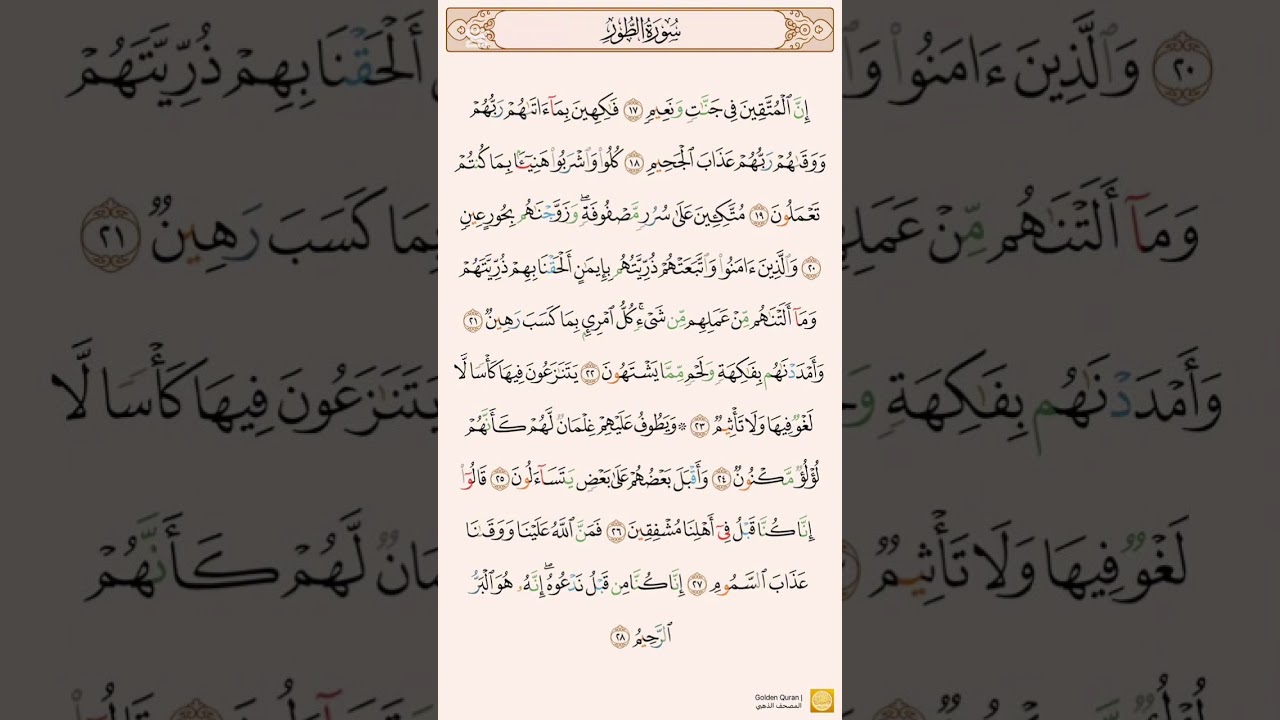 سُورَةُ الطُّورِ
إِنَّ ٱلْمُتَّقِينَ فِى جَنَّٰتٍ وَنَعِيمٍ ١٧ فَٰكِهِينَ بِمَآ ءَاتَىٰهُمْ رَبُّهُمْ
وَوَقَىٰهُمْ رَبُّهُمْ عَذَابَ ٱلْجَحِيمِ ١٨ كُلُوا۟ وَٱشْرَبُوا۟ هَنِيٓـًٔۢا بِمَا كُنتُمْ
تَعْمَلُونَ ١٩ مُتَّكِـِٔينَ عَلَىٰ سُرُرٍ مَّصْفُوفَةٍ ۖ وَزَوَّجْنَٰهُم بِحُورٍ عِينٍ
٢٠ وَٱلَّذِينَ ءَامَنُوا۟ وَٱتَّبَعَتْهُمْ ذُرِّيَّتُهُم بِإِيمَٰنٍ أَلْحَقْنَا بِهِمْ ذُرِّيَّتَهُمْ
وَمَآ أَلَتْنَٰهُم مِّنْ عَمَلِهِم مِّن شَىْءٍ ۚ كُلُّ ٱمْرِئٍۭ بِمَا كَسَبَ رَهِينٌ ٢١
وَأَمْدَدْنَٰهُم بِفَٰكِهَةٍ وَلَحْمٍ مِّمَّا يَشْتَهُونَ ٢٢ يَتَنَٰزَعُونَ فِيهَا كَأْسًا لَّا
لَغْوٌ فِيهَا وَلَا تَأْثِيمٌ ٢٣ ۞ وَيَطُوفُ عَلَيْهِمْ غِلْمَانٌ لَّهُمْ كَأَنَّهُمْ
لُؤْلُؤٌ مَّكْنُونٌ ٢٤ وَأَقْبَلَ بَعْضُهُمْ عَلَىٰ بَعْضٍ يَتَسَآءَلُونَ ٢٥ قَالُوٓا۟
إِنَّا كُنَّا قَبْلُ فِىٓ أَهْلِنَا مُشْفِقِينَ ٢٦ فَمَنَّ ٱللَّهُ عَلَيْنَا وَوَقَىٰنَا
عَذَابَ ٱلسَّمُومِ ٢٧ إِنَّا كُنَّا مِن قَبْلُ نَدْعُوهُ ۖ إِنَّهُۥ هُوَ ٱلْبَرُّ
ٱلرَّحِيمُ ٢٨
Golden Quran |
المصحف الذهبي